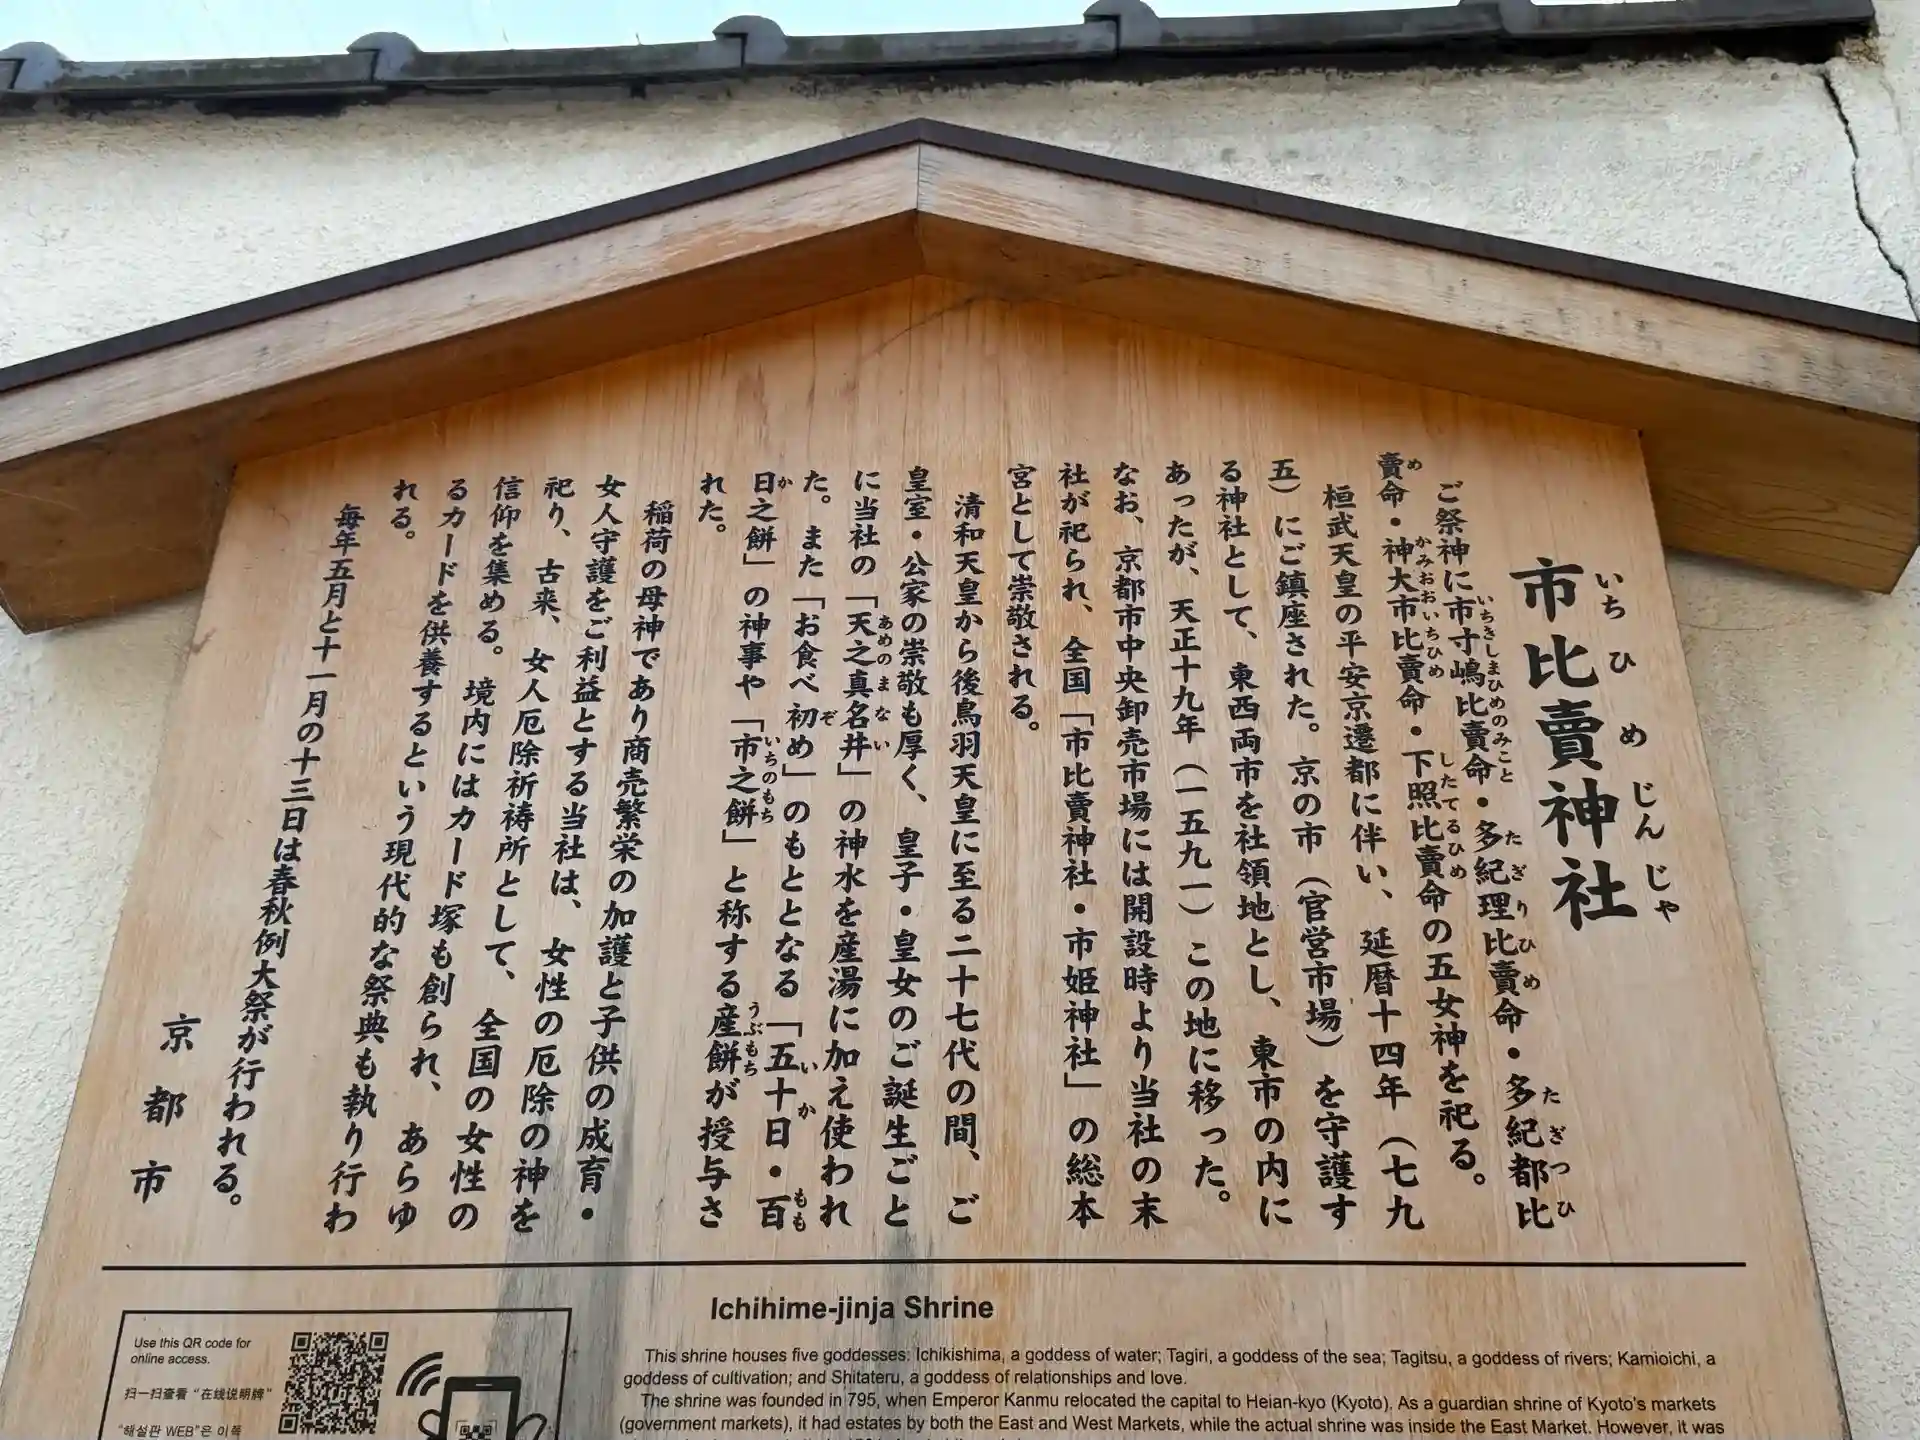 市比賣神社
いちひめじんじゃ
ご祭神に市寸嶋比賣命・多紀理比賣命・多紀都比
いちきしまひめのみこと たぎりひめ たぎつひ
賣命・神大市比賣命・下照比賣命の五女神を祀る。
め かみおおいちひめ したてるひめ
桓武天皇の平安京遷都に伴い、延暦十四年(七九
五)にご鎮座された。京の市(官営市場)を守護す
る神社として、東西両市を社領地とし、東市の内に
あったが、天正十九年(一五九一)この地に移った。
なお、京都市中央卸売市場には開設時より当社の末
社が祀られ、全国「市比賣神社・市姫神社」の総本
宮として崇敬される。
清和天皇から後鳥羽天皇に至る二十七代の間、ご
皇室・公家の崇敬も厚く、皇子・皇女のご誕生ごと
に当社の「天之真名井」の神水を産湯に加え使われ
あめのまない
た。また「お食べ初め」のもととなる「五十日・百
ぞ いか もも
日之餅」の神事や「市之餅」と称する産餅が授与さ
か いちのもち うぶもち
れた。
稲荷の母神であり商売繁栄の加護と子供の成育・
女人守護をご利益とする当社は、女性の厄除の神を
祀り、古来、女人厄除祈祷所として、全国の女性の
信仰を集める。境内にはカード塚も創られ、あらゆ
るカードを供養するという現代的な祭典も執り行わ
れる。
毎年五月と十一月の十三日は春秋例大祭が行われる。
京都市
Ichihime-jinja Shrine
This shrine houses five goddesses: Ichikishima, a goddess of water; Tagiri, a goddess of the sea; Tagitsu, a goddess of rivers; Kamioichi, a
goddess of cultivation; and Shitateru, a goddess of relationships and love.
The shrine was founded in 795, when Emperor Kanmu relocated the capital to Heian-kyo (Kyoto). As a guardian shrine of Kyoto's markets
(government markets), it had estates by both the East and West Markets, while the actual shrine was inside the East Market. However, it was
Use this QR code for
online access.
扫一扫查看“在线说明牌”
"해설판 WEB"은 이쪽